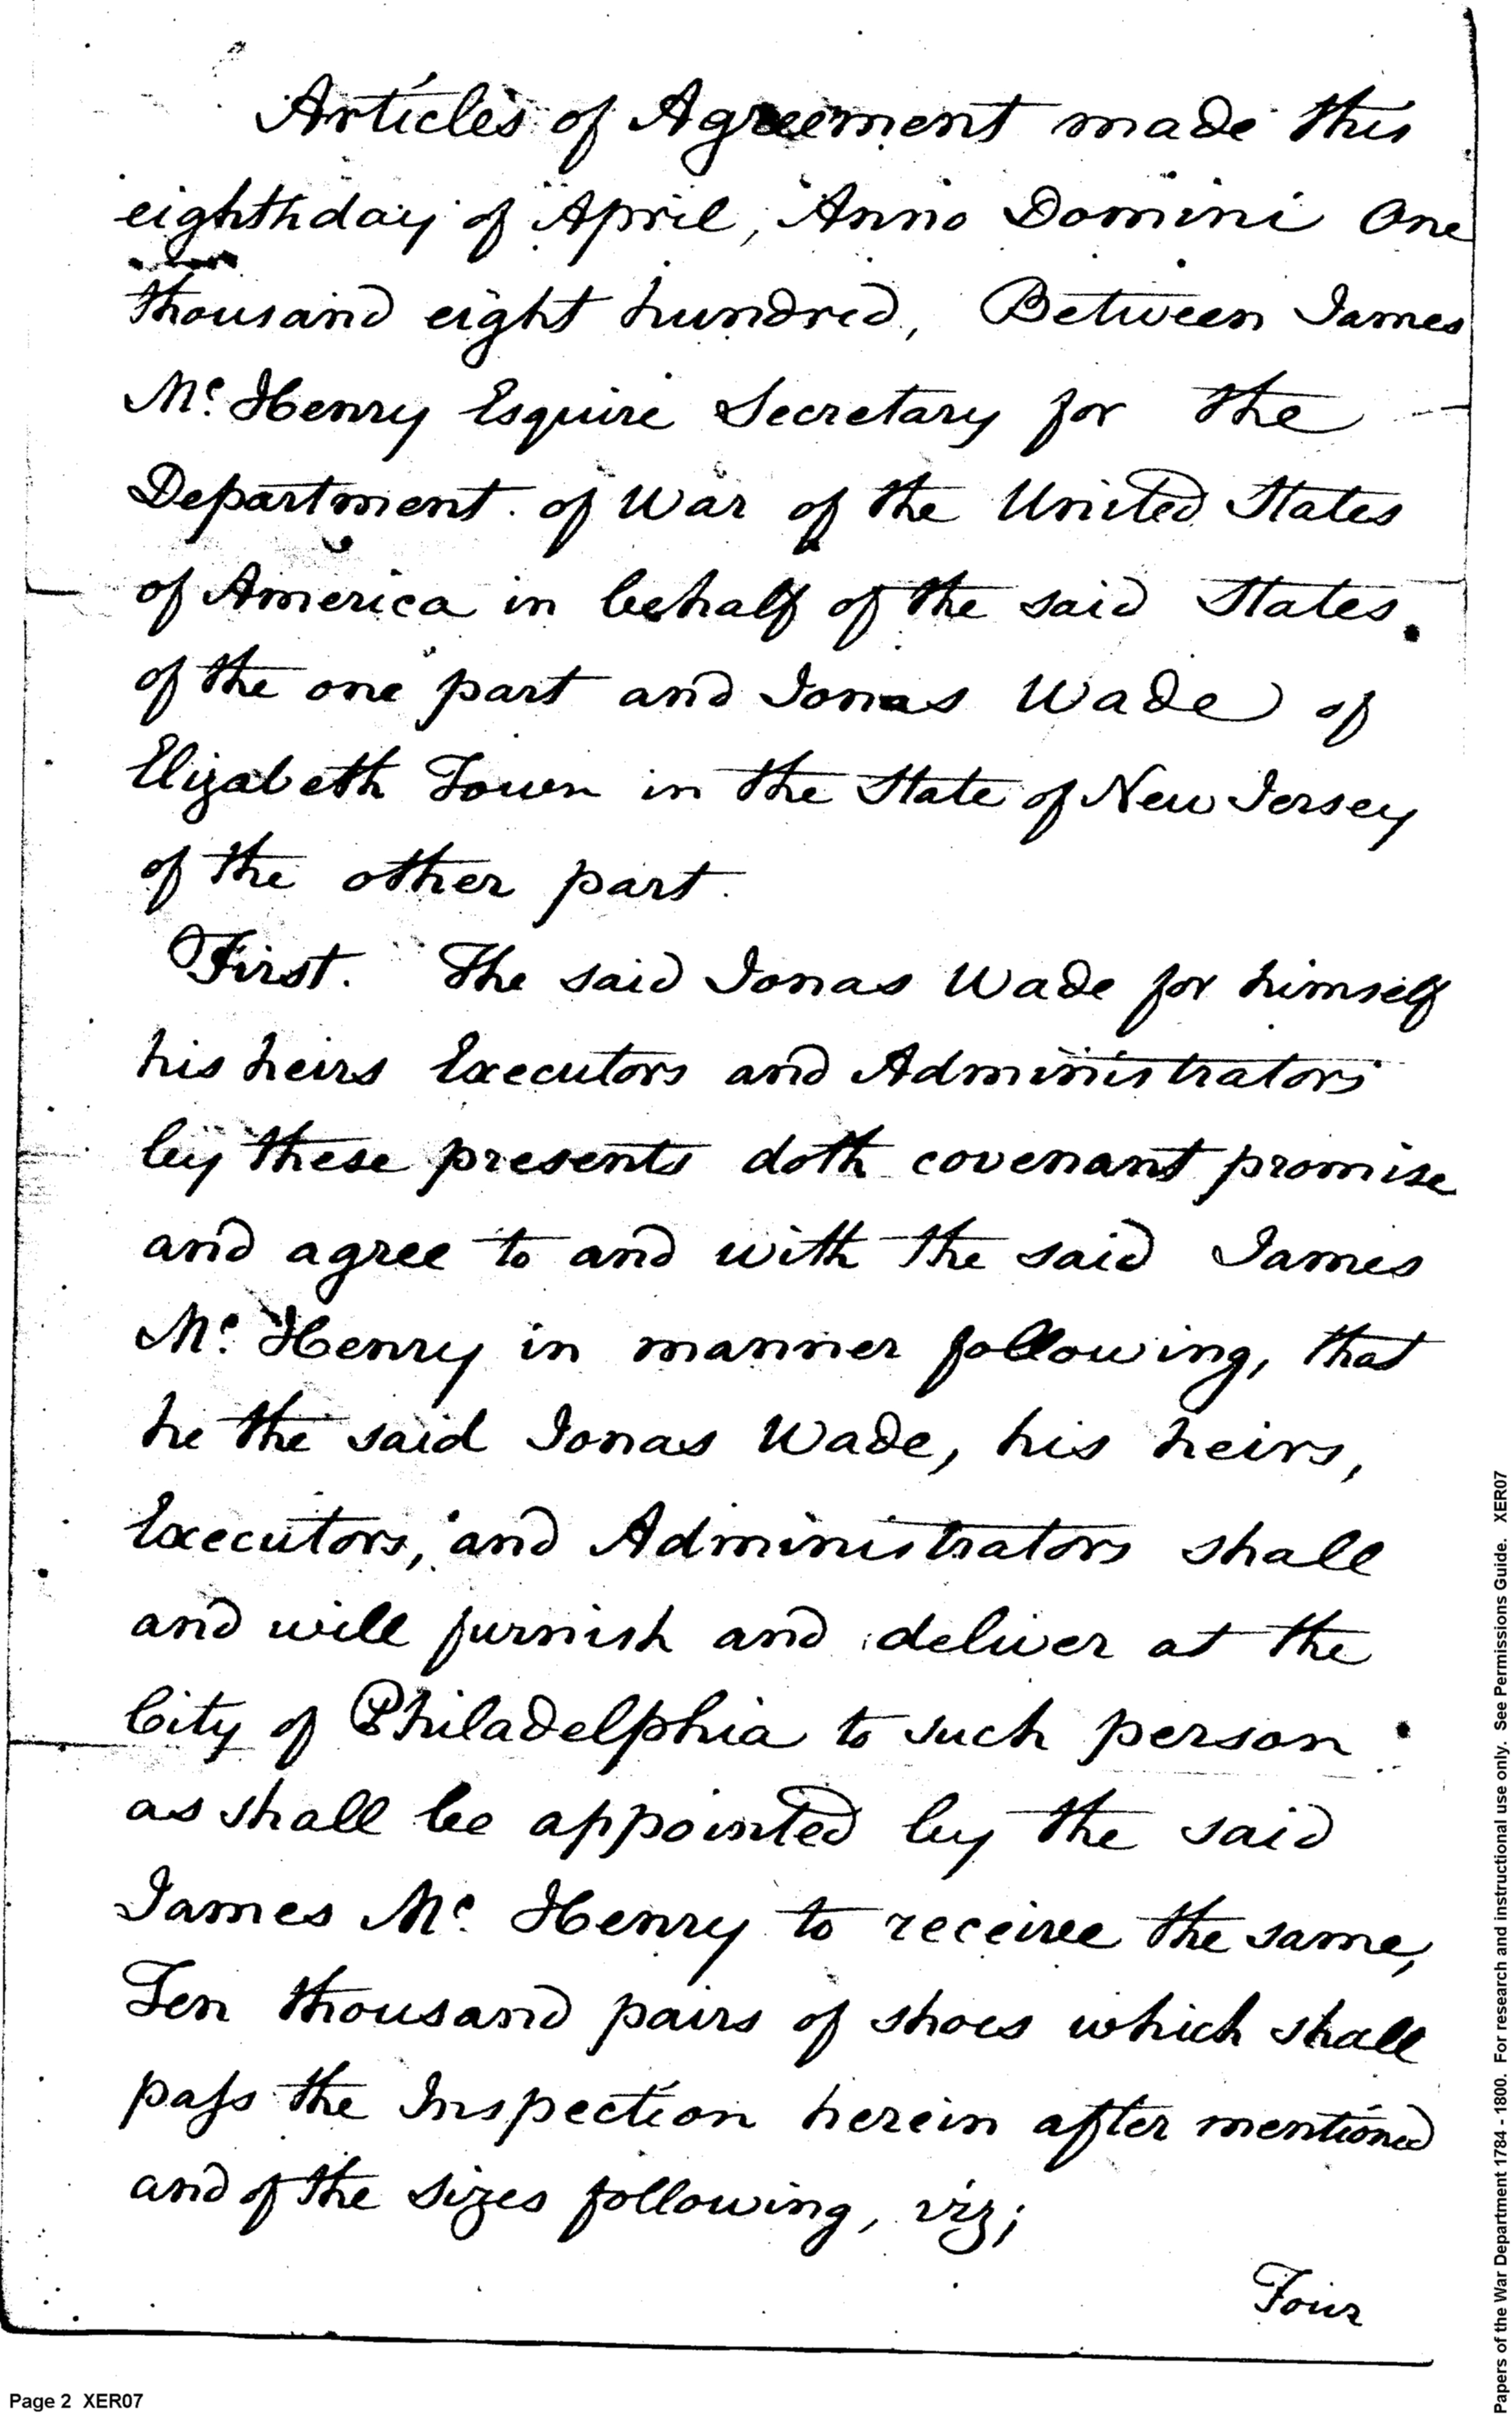 Articles of Agreement made this
eighth day of April, Anno Domini One
thousand eight hundred, Between James
Mc. Henry Esquire Secretary for the
Department of War of the United States
of America in behalf of the said States
of the one part and Jonas Wade of
Elizabeth Town in the State of New Jersey
of the other part.
First. The said Jonas Wade for himself
his heirs Executors and Administrators
by these presents doth covenant promise
and agree to and with the said James
Mc. Henry in manner following, that
he the said Jonas Wade, his heirs,
Executors, and Administrators shall
and will furnish and deliver at the
City of Philadelphia to such person
as shall be appointed by the said
James Mc. Henry to receive the same,
Ten thousand pairs of shoes which shall
paſs the Inspection herein after mentioned
and of the sizes following, viz;
Four
Page 2 XER07
Papers of the War Department 1784 - 1800. For research and instructional use only. See Permissions Guide. XER07